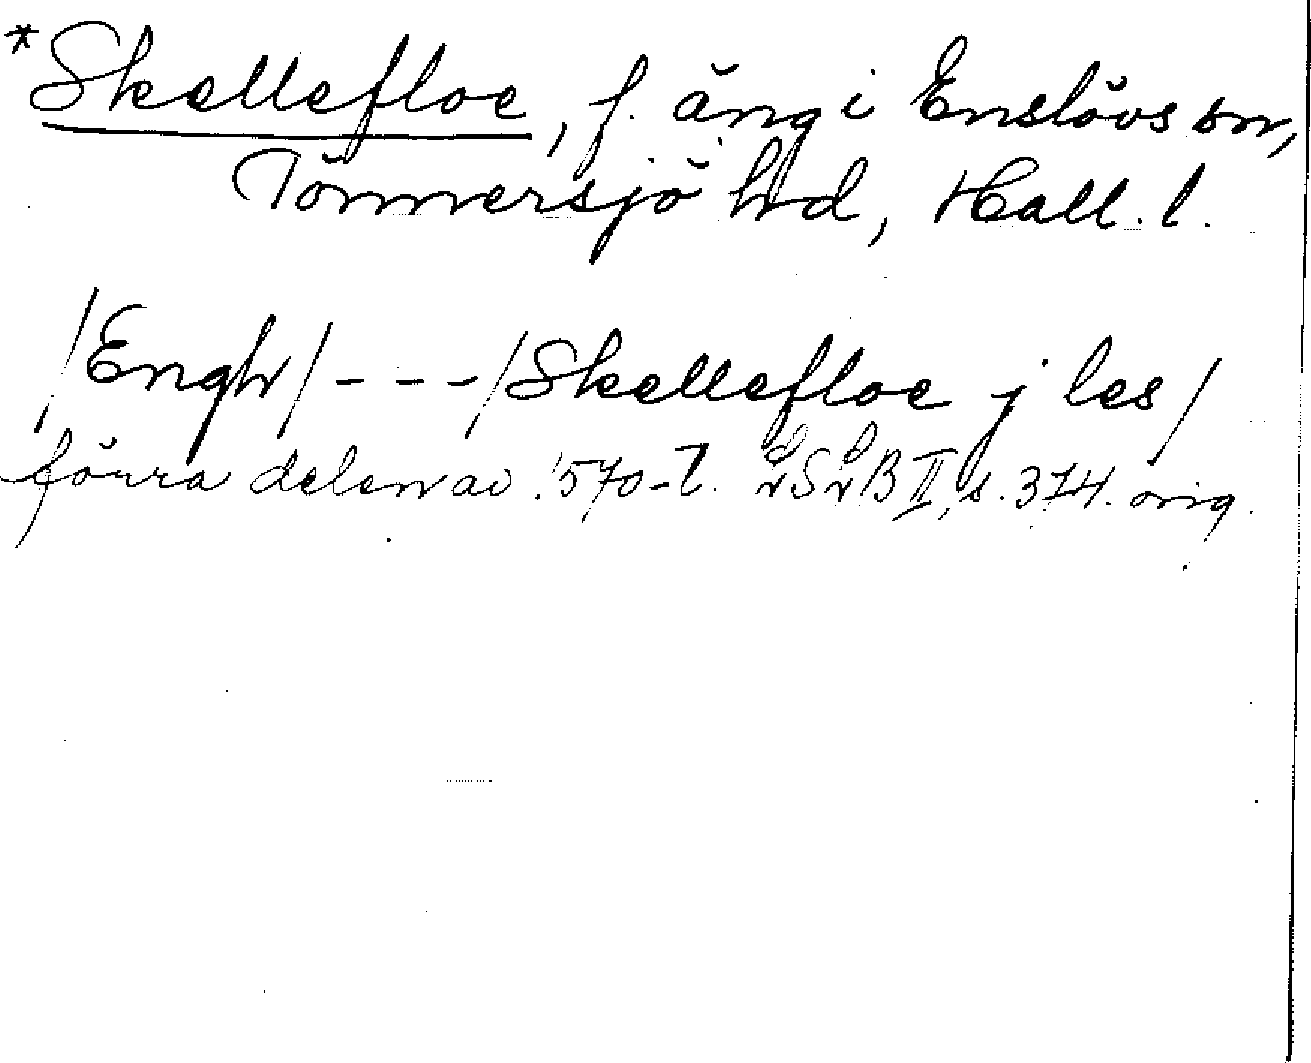 *Skellefloe, f. äng i Enslövs sn,
Tönnersjö hd, Hall. l.
/Engh/ - - - /Skellefloe j les/
förra delen av 1570-t. LSLB II, s. 374. orig.